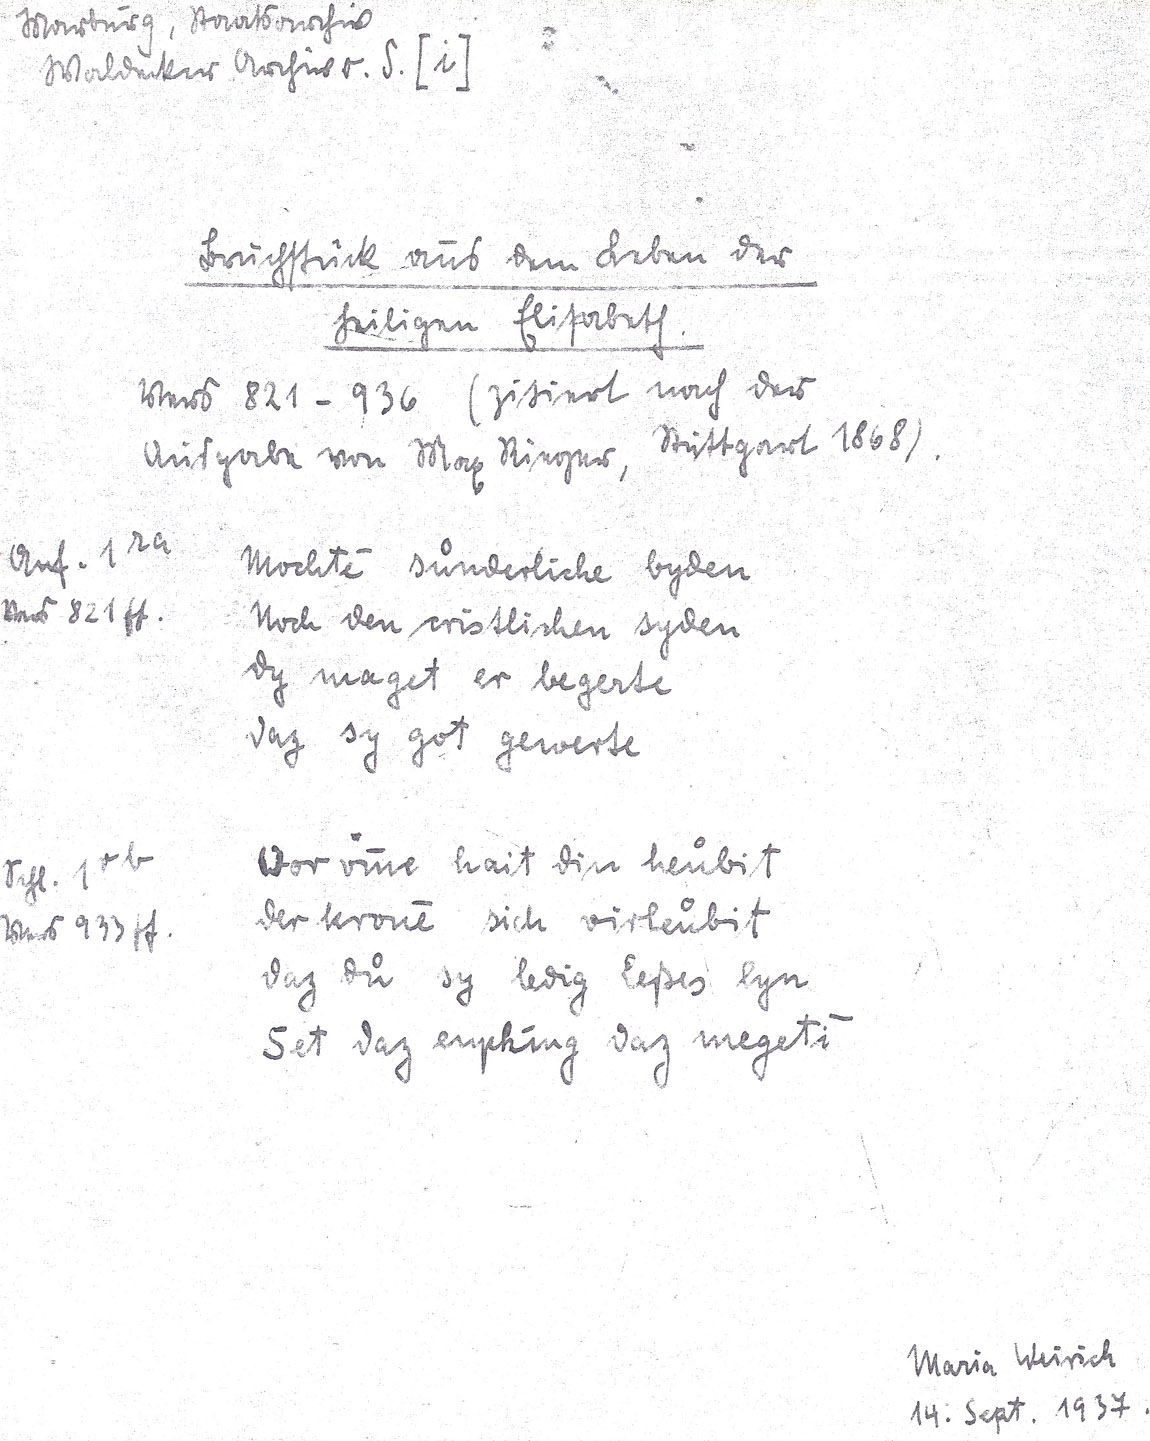 Marburg, Staatsarchiv
Waldecker Archiv o. S. [i]
Bruchstück aus dem Leben der
heiligen Elisabeth.
Vers 821 - 936 (zitiert nach der
Ausgabe von Max Rieger, Stuttgart 1868).
Anf. 1 ra
Vers 821 ff.
Mochtē sůnderliche byden
Noch den cristlichen syden
dy maget er begerte
daz sy got gewerte
Schl. 1 rb
Vers 933 ff.
Wor vm̄e hait din heůbit
der kronē sich virleůbit
daz dů sy ledig leßes syn
Set daz enphing daz megetī
Maria Weirich
14. Sept. 1937.